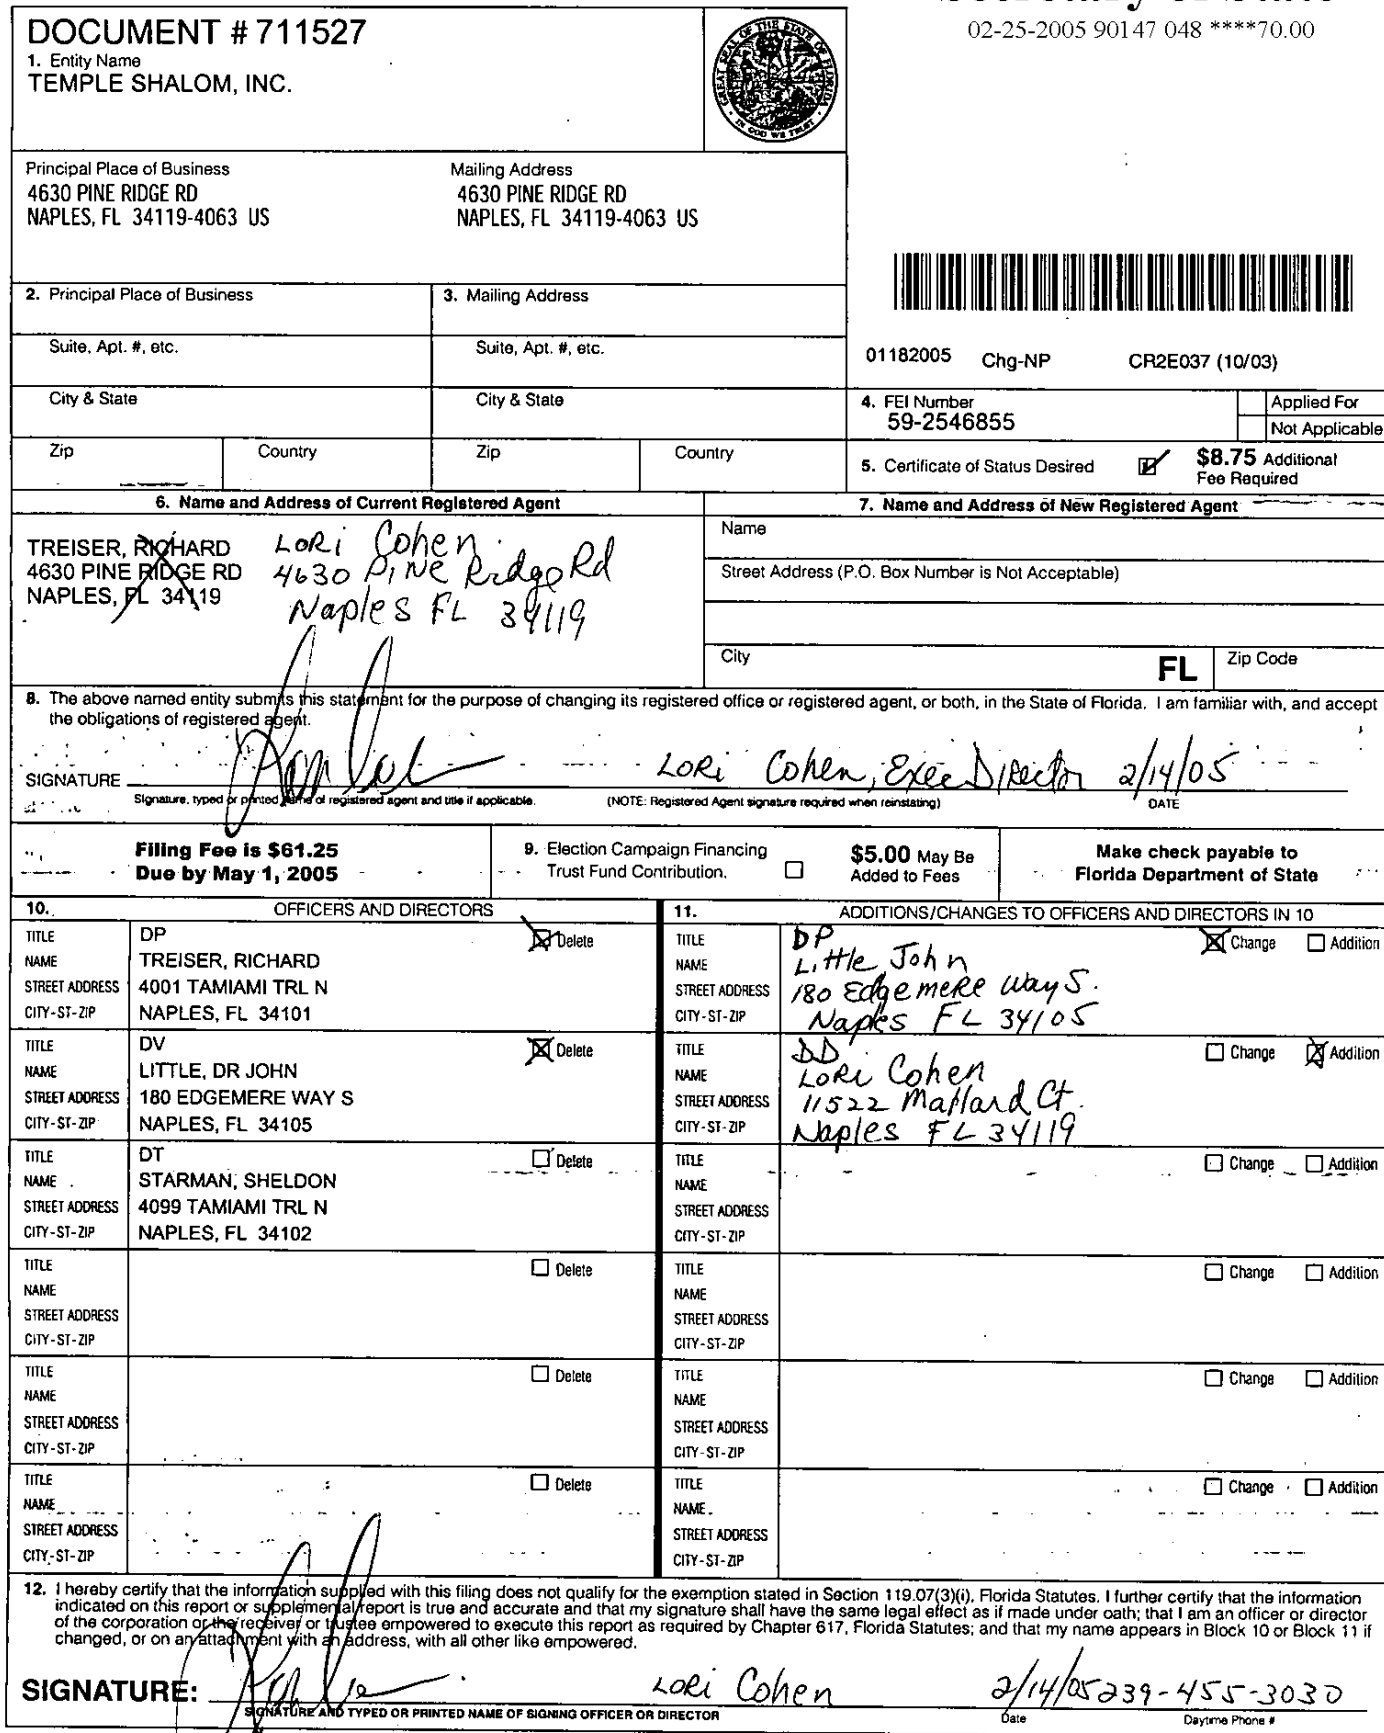 02-25-2005 90147 048 ****70.00
DOCUMENT # 711527
1. Entity Name
TEMPLE SHALOM, INC.
GREAT SEAL OF THE STATE OF FLORIDA
IN GOD WE TRUST
Principal Place of Business
4630 PINE RIDGE RD
NAPLES, FL 34119-4063 US
Mailing Address
4630 PINE RIDGE RD
NAPLES, FL 34119-4063 US
2. Principal Place of Business
3. Mailing Address
Suite, Apt. #, etc.
Suite, Apt. #, etc.
City & State
City & State
Zip Country
Zip Country
01182005 Chg-NP CR2E037 (10/03)
4. FEI Number
59-2546855
Applied For
Not Applicable
5. Certificate of Status Desired
$8.75 Additional
Fee Required
6. Name and Address of Current Registered Agent
TREISER, RICHARD
4630 PINE RIDGE RD
NAPLES, FL 34119
Lori Cohen
4630 Pine Ridge Rd
Naples FL 34119
7. Name and Address of New Registered Agent
Name
Street Address (P.O. Box Number is Not Acceptable)
City FL Zip Code
8. The above named entity submits this statement for the purpose of changing its registered office or registered agent, or both, in the State of Florida. I am familiar with, and accept
the obligations of registered agent.
SIGNATURE Lori Cohen, Exec Director 2/14/05
Signature, typed or printed name of registered agent and title if applicable. (NOTE: Registered Agent signature required when reinstating) DATE
Filing Fee is $61.25
Due by May 1, 2005
9. Election Campaign Financing
Trust Fund Contribution.
$5.00 May Be
Added to Fees
Make check payable to
Florida Department of State
10. OFFICERS AND DIRECTORS
TITLE DP Delete
NAME TREISER, RICHARD
STREET ADDRESS 4001 TAMIAMI TRL N
CITY-ST-ZIP NAPLES, FL 34101
TITLE DV Delete
NAME LITTLE, DR JOHN
STREET ADDRESS 180 EDGEMERE WAY S
CITY-ST-ZIP NAPLES, FL 34105
TITLE DT Delete
NAME STARMAN, SHELDON
STREET ADDRESS 4099 TAMIAMI TRL N
CITY-ST-ZIP NAPLES, FL 34102
TITLE Delete
NAME
STREET ADDRESS
CITY-ST-ZIP
TITLE Delete
NAME
STREET ADDRESS
CITY-ST-ZIP
TITLE Delete
NAME
STREET ADDRESS
CITY-ST-ZIP
11. ADDITIONS/CHANGES TO OFFICERS AND DIRECTORS IN 10
TITLE DP Change Addition
NAME Little John
STREET ADDRESS 180 Edgemere Way S.
CITY-ST-ZIP Naples FL 34105
TITLE DD Change Addition
NAME Lori Cohen
STREET ADDRESS 11522 Mallard Ct.
CITY-ST-ZIP Naples FL 34119
TITLE Change Addition
NAME
STREET ADDRESS
CITY-ST-ZIP
TITLE Change Addition
NAME
STREET ADDRESS
CITY-ST-ZIP
TITLE Change Addition
NAME
STREET ADDRESS
CITY-ST-ZIP
TITLE Change Addition
NAME
STREET ADDRESS
CITY-ST-ZIP
12. I hereby certify that the information supplied with this filing does not qualify for the exemption stated in Section 119.07(3)(i), Florida Statutes. I further certify that the information
indicated on this report or supplemental report is true and accurate and that my signature shall have the same legal effect as if made under oath; that I am an officer or director
of the corporation or the receiver or trustee empowered to execute this report as required by Chapter 617, Florida Statutes; and that my name appears in Block 10 or Block 11 if
changed, or on an attachment with an address, with all other like empowered.
SIGNATURE: Lori Cohen 2/14/05 239-455-3030
SIGNATURE AND TYPED OR PRINTED NAME OF SIGNING OFFICER OR DIRECTOR Date Daytime Phone #